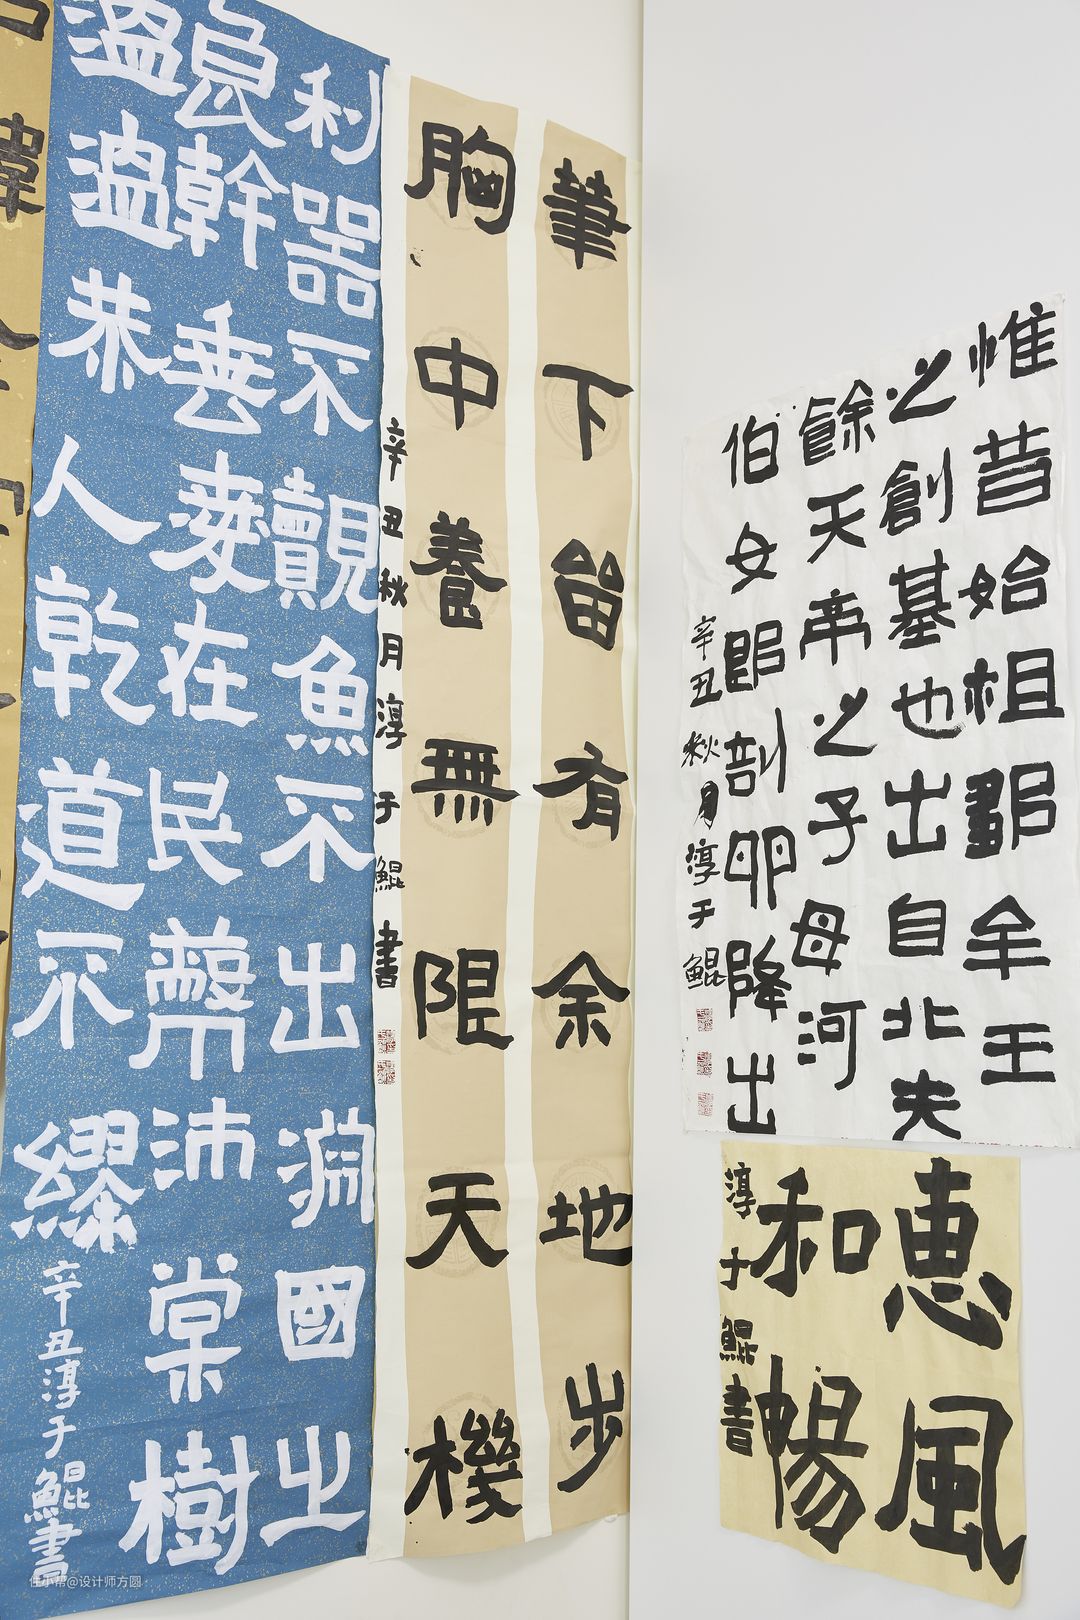 惟昔始祖鄒牟王
之創基也出自北夫
餘天帝之子母河
伯女郎剖卵降出
辛丑秋月淳于鯤
惠風
和暢
淳于鯤書
筆下留有余地步
胸中養無限天機
辛丑秋月淳于鯤書
利器不覿魚不出淵國之
良幹垂愛在民蔽沛棠樹
溫溫恭人乾道不繆
辛丑淳于鯤書
住小帮@设计师方圆